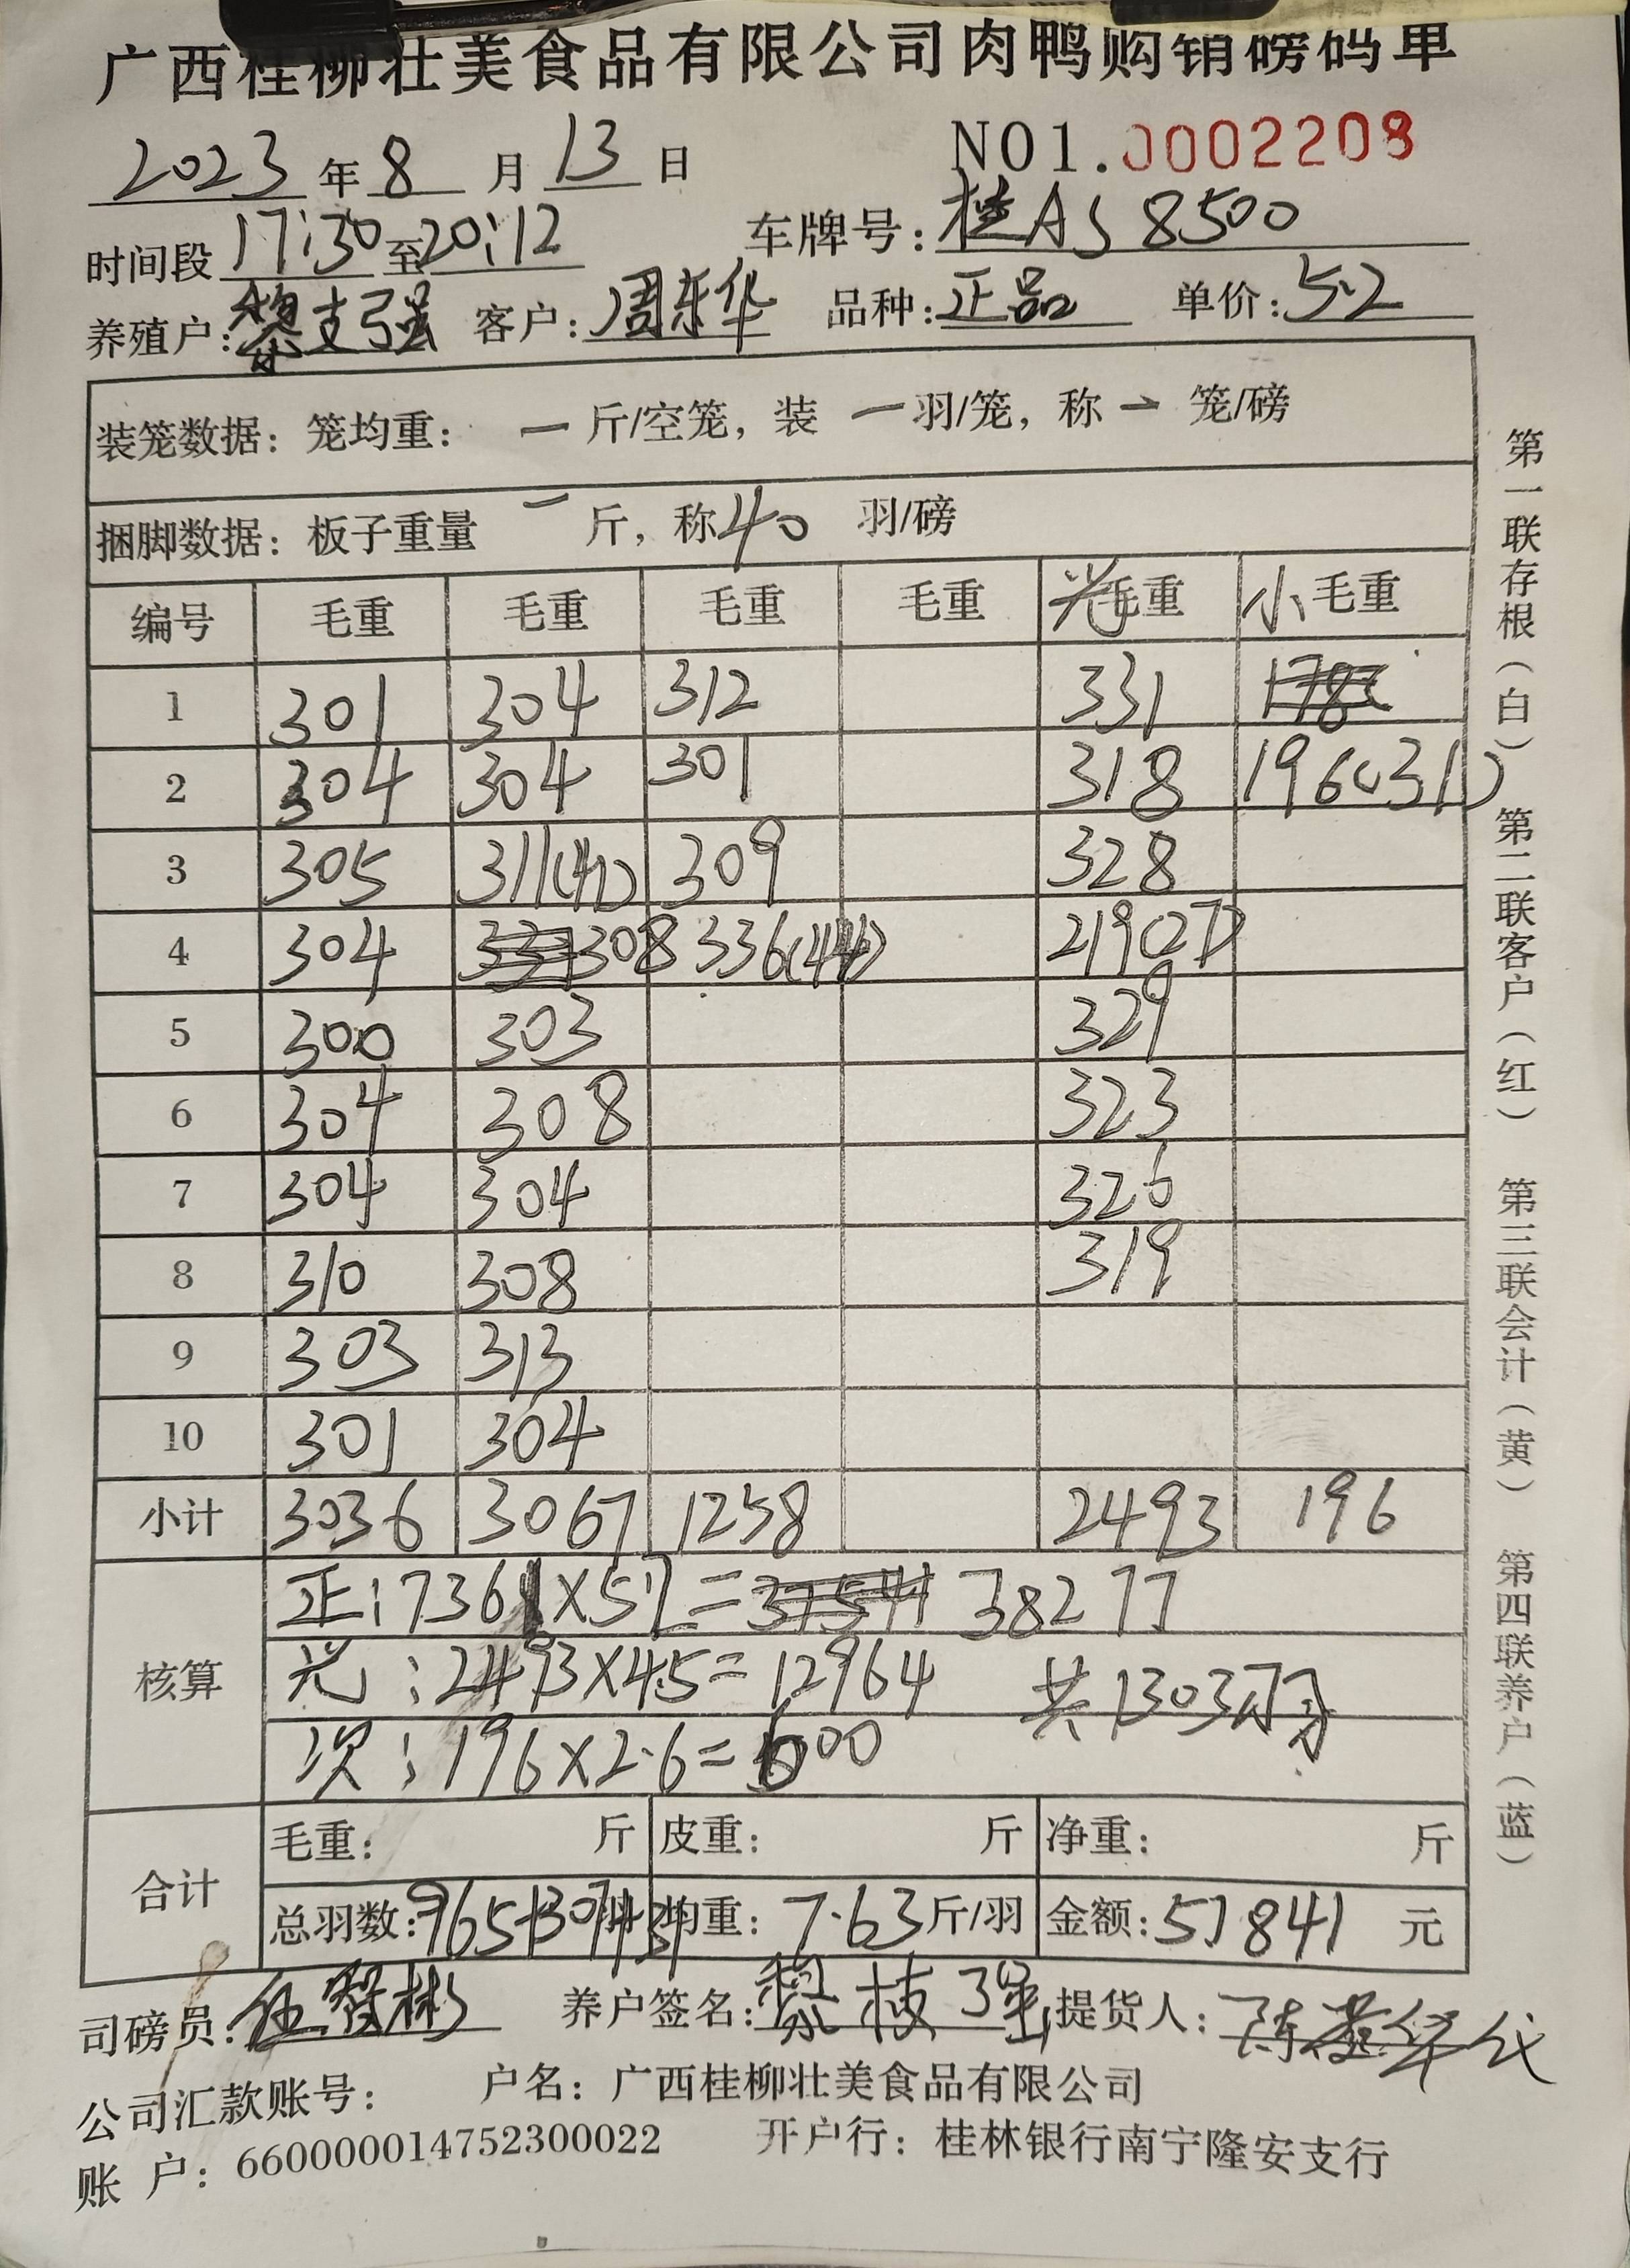 广西桂柳壮美食品有限公司肉鸭购销磅码单
2023年8月13日 NO1.0002208
时间段17:30至20:12 车牌号:桂AS8500
养殖户:黎支强 客户:周东华 品种:正品 单价:5.2
装笼数据:笼均重: 一 斤/空笼,装 一 羽/笼,称 一 笼/磅
捆脚数据:板子重量 一 斤,称40 羽/磅
编号 毛重 毛重 毛重 毛重 光毛重 小毛重
1 301 304 312 331 178
2 304 304 301 318 196(31)
3 305 311(41) 309 328
4 304 308 336(44) 219(27)
5 300 303 329
6 304 308 323
7 304 304 326
8 310 308 319
9 303 313
10 301 304
小计 3036 3067 1258 2493 196
核算
正:7361×5.2=37541 38277
光:2493×4.5=12964 共1303羽
次:196×2.6=600
合计
毛重: 斤 皮重: 斤 净重: 斤
总羽数:965+307+31 均重:7.63斤/羽 金额:51841 元
司磅员:伍 彬 养户签名:黎枝强 提货人:陈 华代
公司汇款账号: 户名:广西桂柳壮美食品有限公司
账 户:660000014752300022 开户行:桂林银行南宁隆安支行
第一联存根(白) 第二联客户(红) 第三联会计(黄) 第四联养户(蓝)